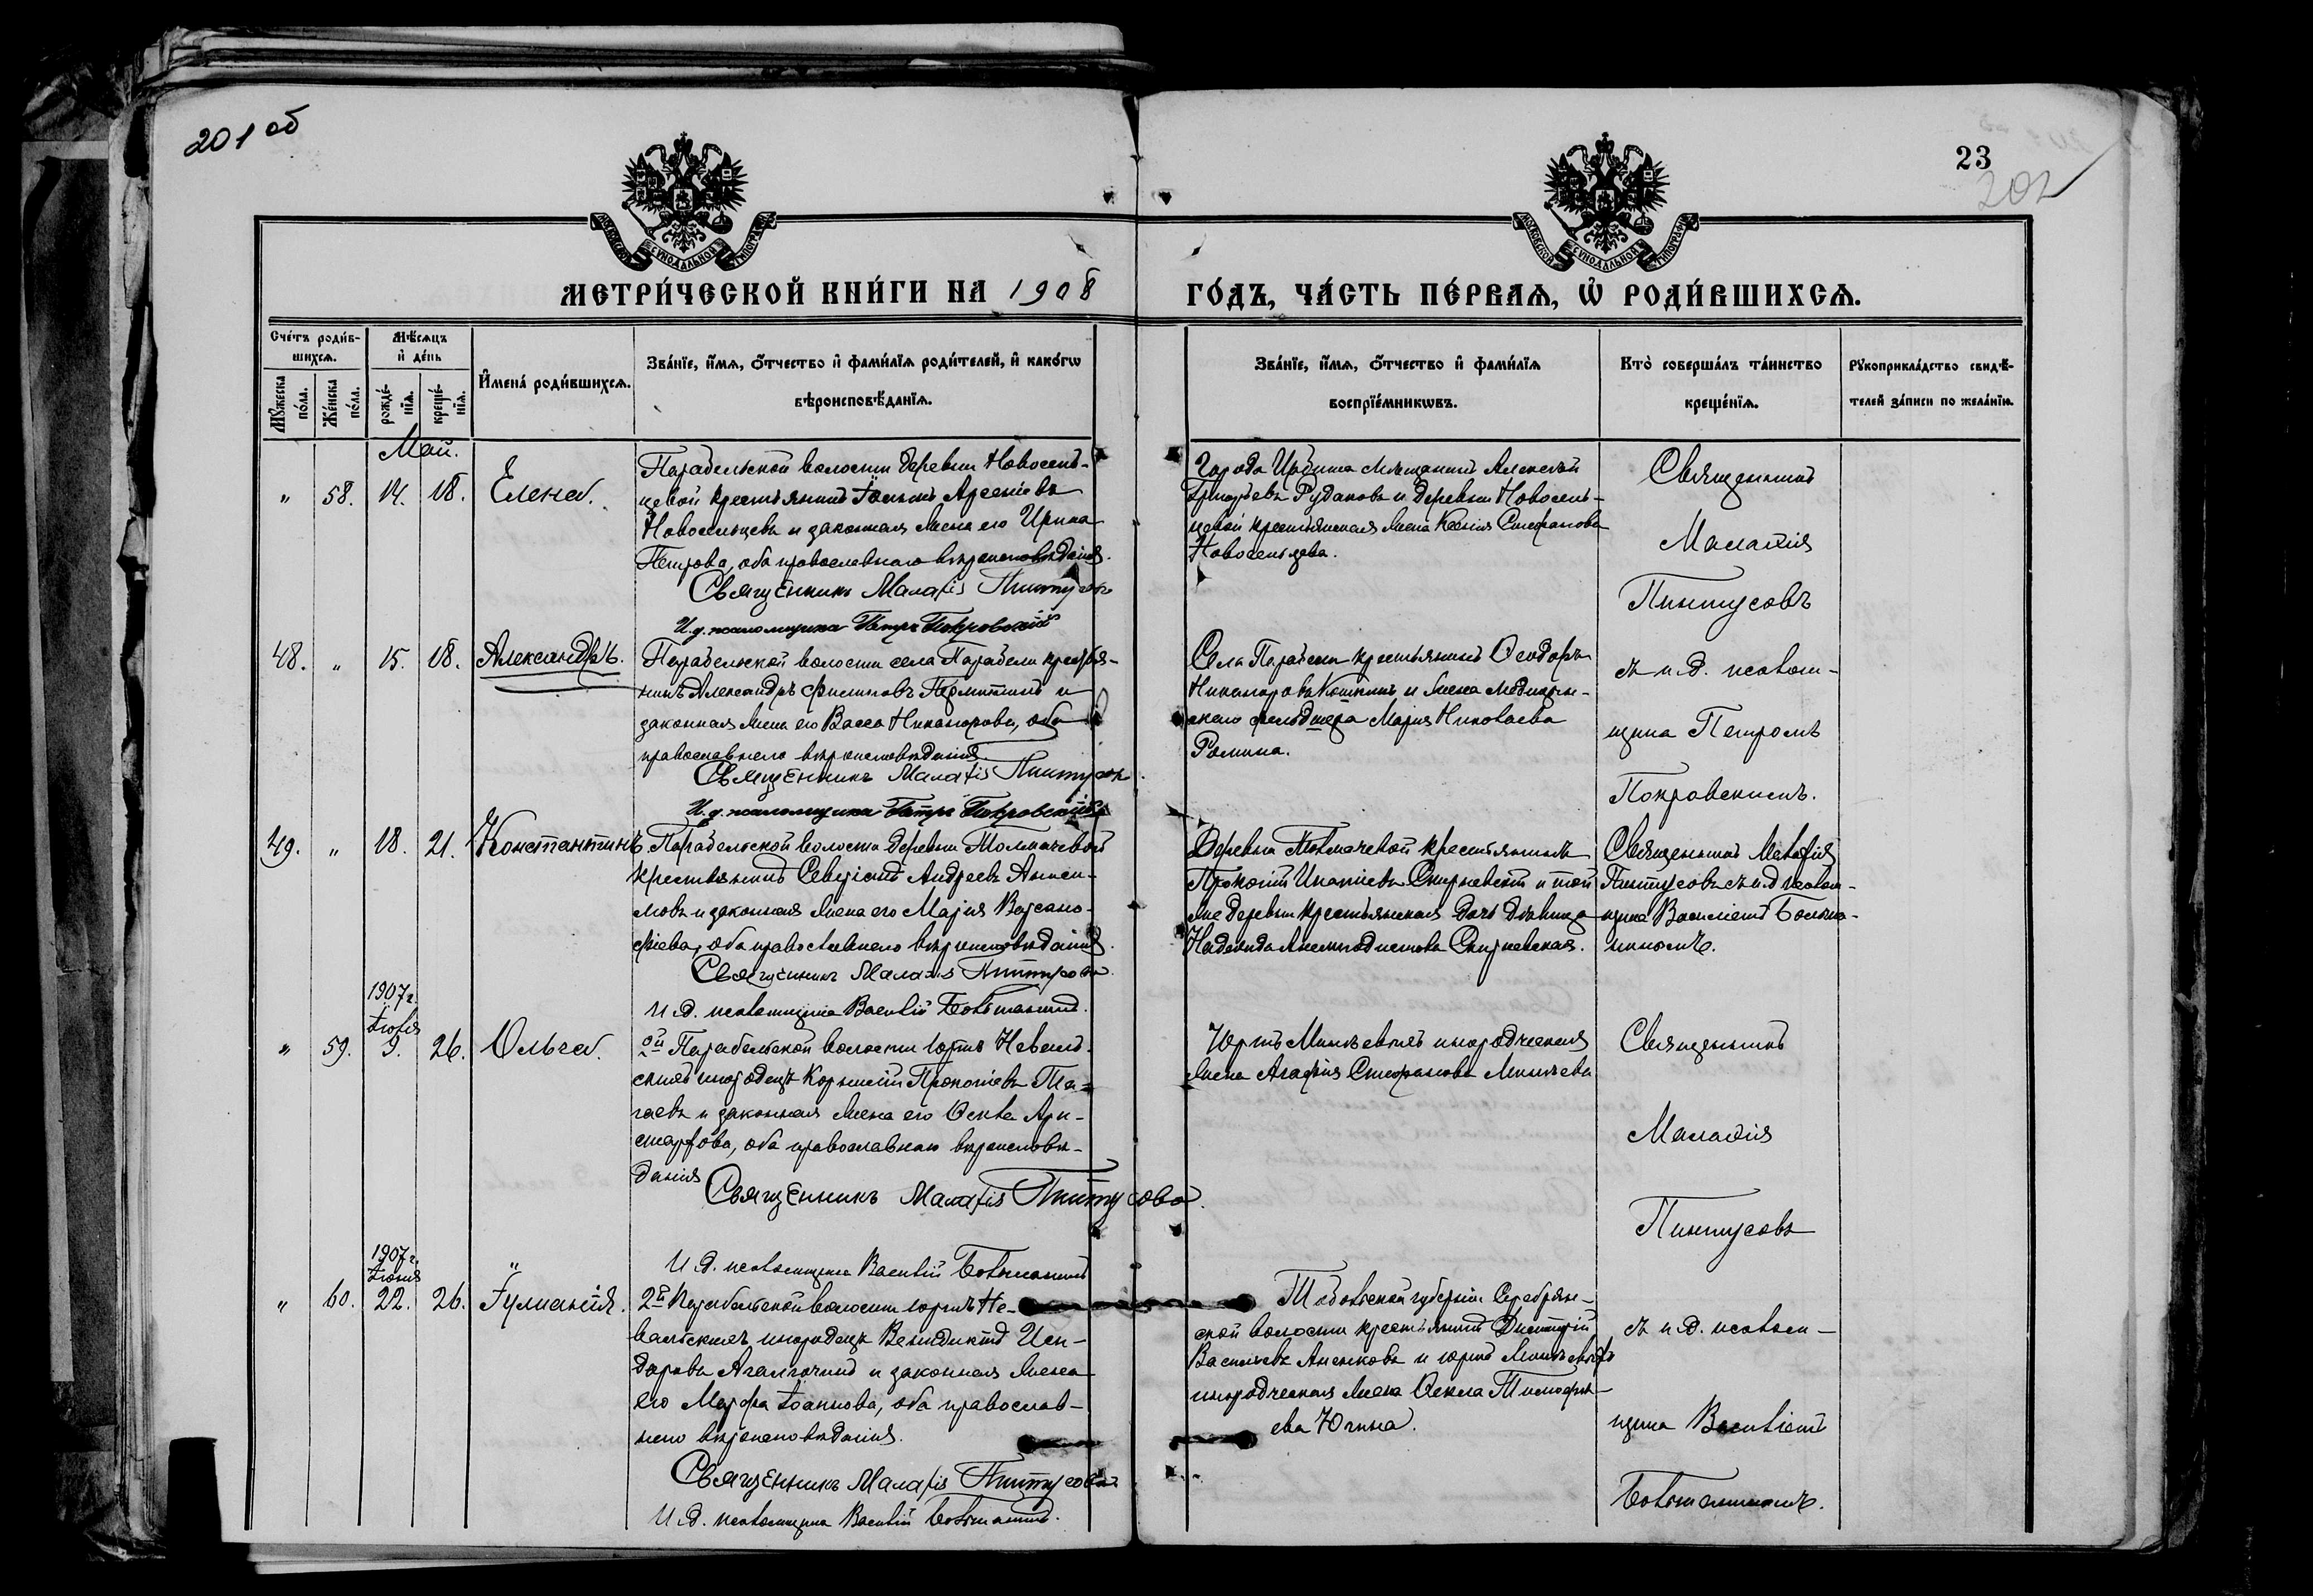 201 об
23
202
МОСКОВСКОЙ СѴНОДАЛЬНОЙ ТИПОГРАФІИ
МОСКОВСКОЙ СѴНОДАЛЬНОЙ ТИПОГРАФІИ
МЕТРИ́ЧЕСКОЙ КНИ́ГИ НА 1908 ГО́ДЪ, ЧА́СТЬ ПЕ́РВАѦ, Ѡ РОДИ́ВШИХСѦ.
Сче́тъ роди́в-
шихсѧ.
Мꙋжеска по́ла.
Же́нска по́ла.
Мѣ́сѧцъ
и҆ де́нь
рожде́-
нїѧ.
креще́-
нїѧ.
И҆мена́ роди́вшихсѧ.
Зва́нїе, и҆́мѧ, ѻ҆́тчество и҆ фами́лїѧ роди́телей, и҆ како́гѡ
вѣроисповѣ́данїѧ.
Зва́нїе, и҆́мѧ, ѻ҆́тчество и҆ фами́лїѧ
воспрїе́мникѡвъ.
Кто̀ соверша́лъ та́инство
креще́нїѧ.
Рꙋкоприкла́дство свидѣ́-
телей за́писи по жела́нїю.
Май.
" 58. 14. 18. Елена.
Парабельской волости деревни Новосель-
цевой крестьянинъ Арсеніевъ
Новосельцевъ и законная жена его Ирина
Петрова, оба православнаго вѣроисповѣданія.
Священникъ Малахія Пинтусовъ
И.д. псаломщика Петръ Покровскій
Города мѣщанинъ Алексѣй
Григорьевъ Рудаковъ и деревни Новосель-
цевой крестьянская жена Ксенія Стефанова
Новосельцева.
Священникъ
Малахія
Пинтусовъ
48. " 15. 18. Александръ.
Парабельской волости села Парабели крестья-
нинъ Александръ Филиповъ и
законная жена его Васса Никанорова, оба
православнаго вѣроисповѣданія.
Священникъ Малахія Пинтусовъ.
И.д. псаломщика Петръ Покровскій
Села Парабели крестьянинъ Ѳеодоръ
Никаноровъ и жена медицин-
скаго фельдшера Марія Николаева
Ромина.
съ и.д. псалом-
щика Петромъ
Покровскимъ.
49. " 18. 21. Константинъ.
Парабельской волости деревни Толмачевой
крестьянинъ Севиріанъ Андреевъ Аниси-
мовъ и законная жена его Марія Варсано-
фіева, оба православнаго вѣроисповѣданія.
Священникъ Малахія Пинтусовъ.
И.д. псаломщика Василій Больтовскій.
Деревни Толмачевой крестьянинъ
Прокопій Ипатіевъ Сширневскій и той
же деревни крестьянская дочь дѣвица
Надежда
Священникъ Малахія
Пинтусовъ съ и.д. псалом-
щика Василіемъ
1907 г.
Іюля
" 59. 9. 26. Ольга.
Парабельской волости юртъ Неваль-
скихъ инородецъ Корнилій Прокопіевъ Та-
гаевъ и законная жена его Ѳекла Ари-
стархова, оба православнаго вѣроисповѣ-
данія
Священникъ Малахія Пинтусовъ.
И.д. псаломщика Василій
Юртъ Минѣевыхъ инородческая
жена Агафія Стефанова Минѣева
Священникъ
Малахія
Пинтусовъ
1907 г.
Іюня
" 60. 22. 26. Іуліанія.
2й Парабельской волости юртъ Не-
вальскихъ инородецъ Венедиктъ Иси-
доровъ и законная жена
его Марфа Іоаннова, оба православ-
наго вѣроисповѣданія.
Священникъ Малахія Пинтусовъ
И.д. псаломщика Василій
Тобольской губерніи Серебрян-
ской волости крестьянинъ Дмитрій
Васильевъ и юртъ Минѣевыхъ
инородческая жена Ѳекла Тимофѣ-
ева Югина.
съ и.д. псалом-
щика Василіемъ